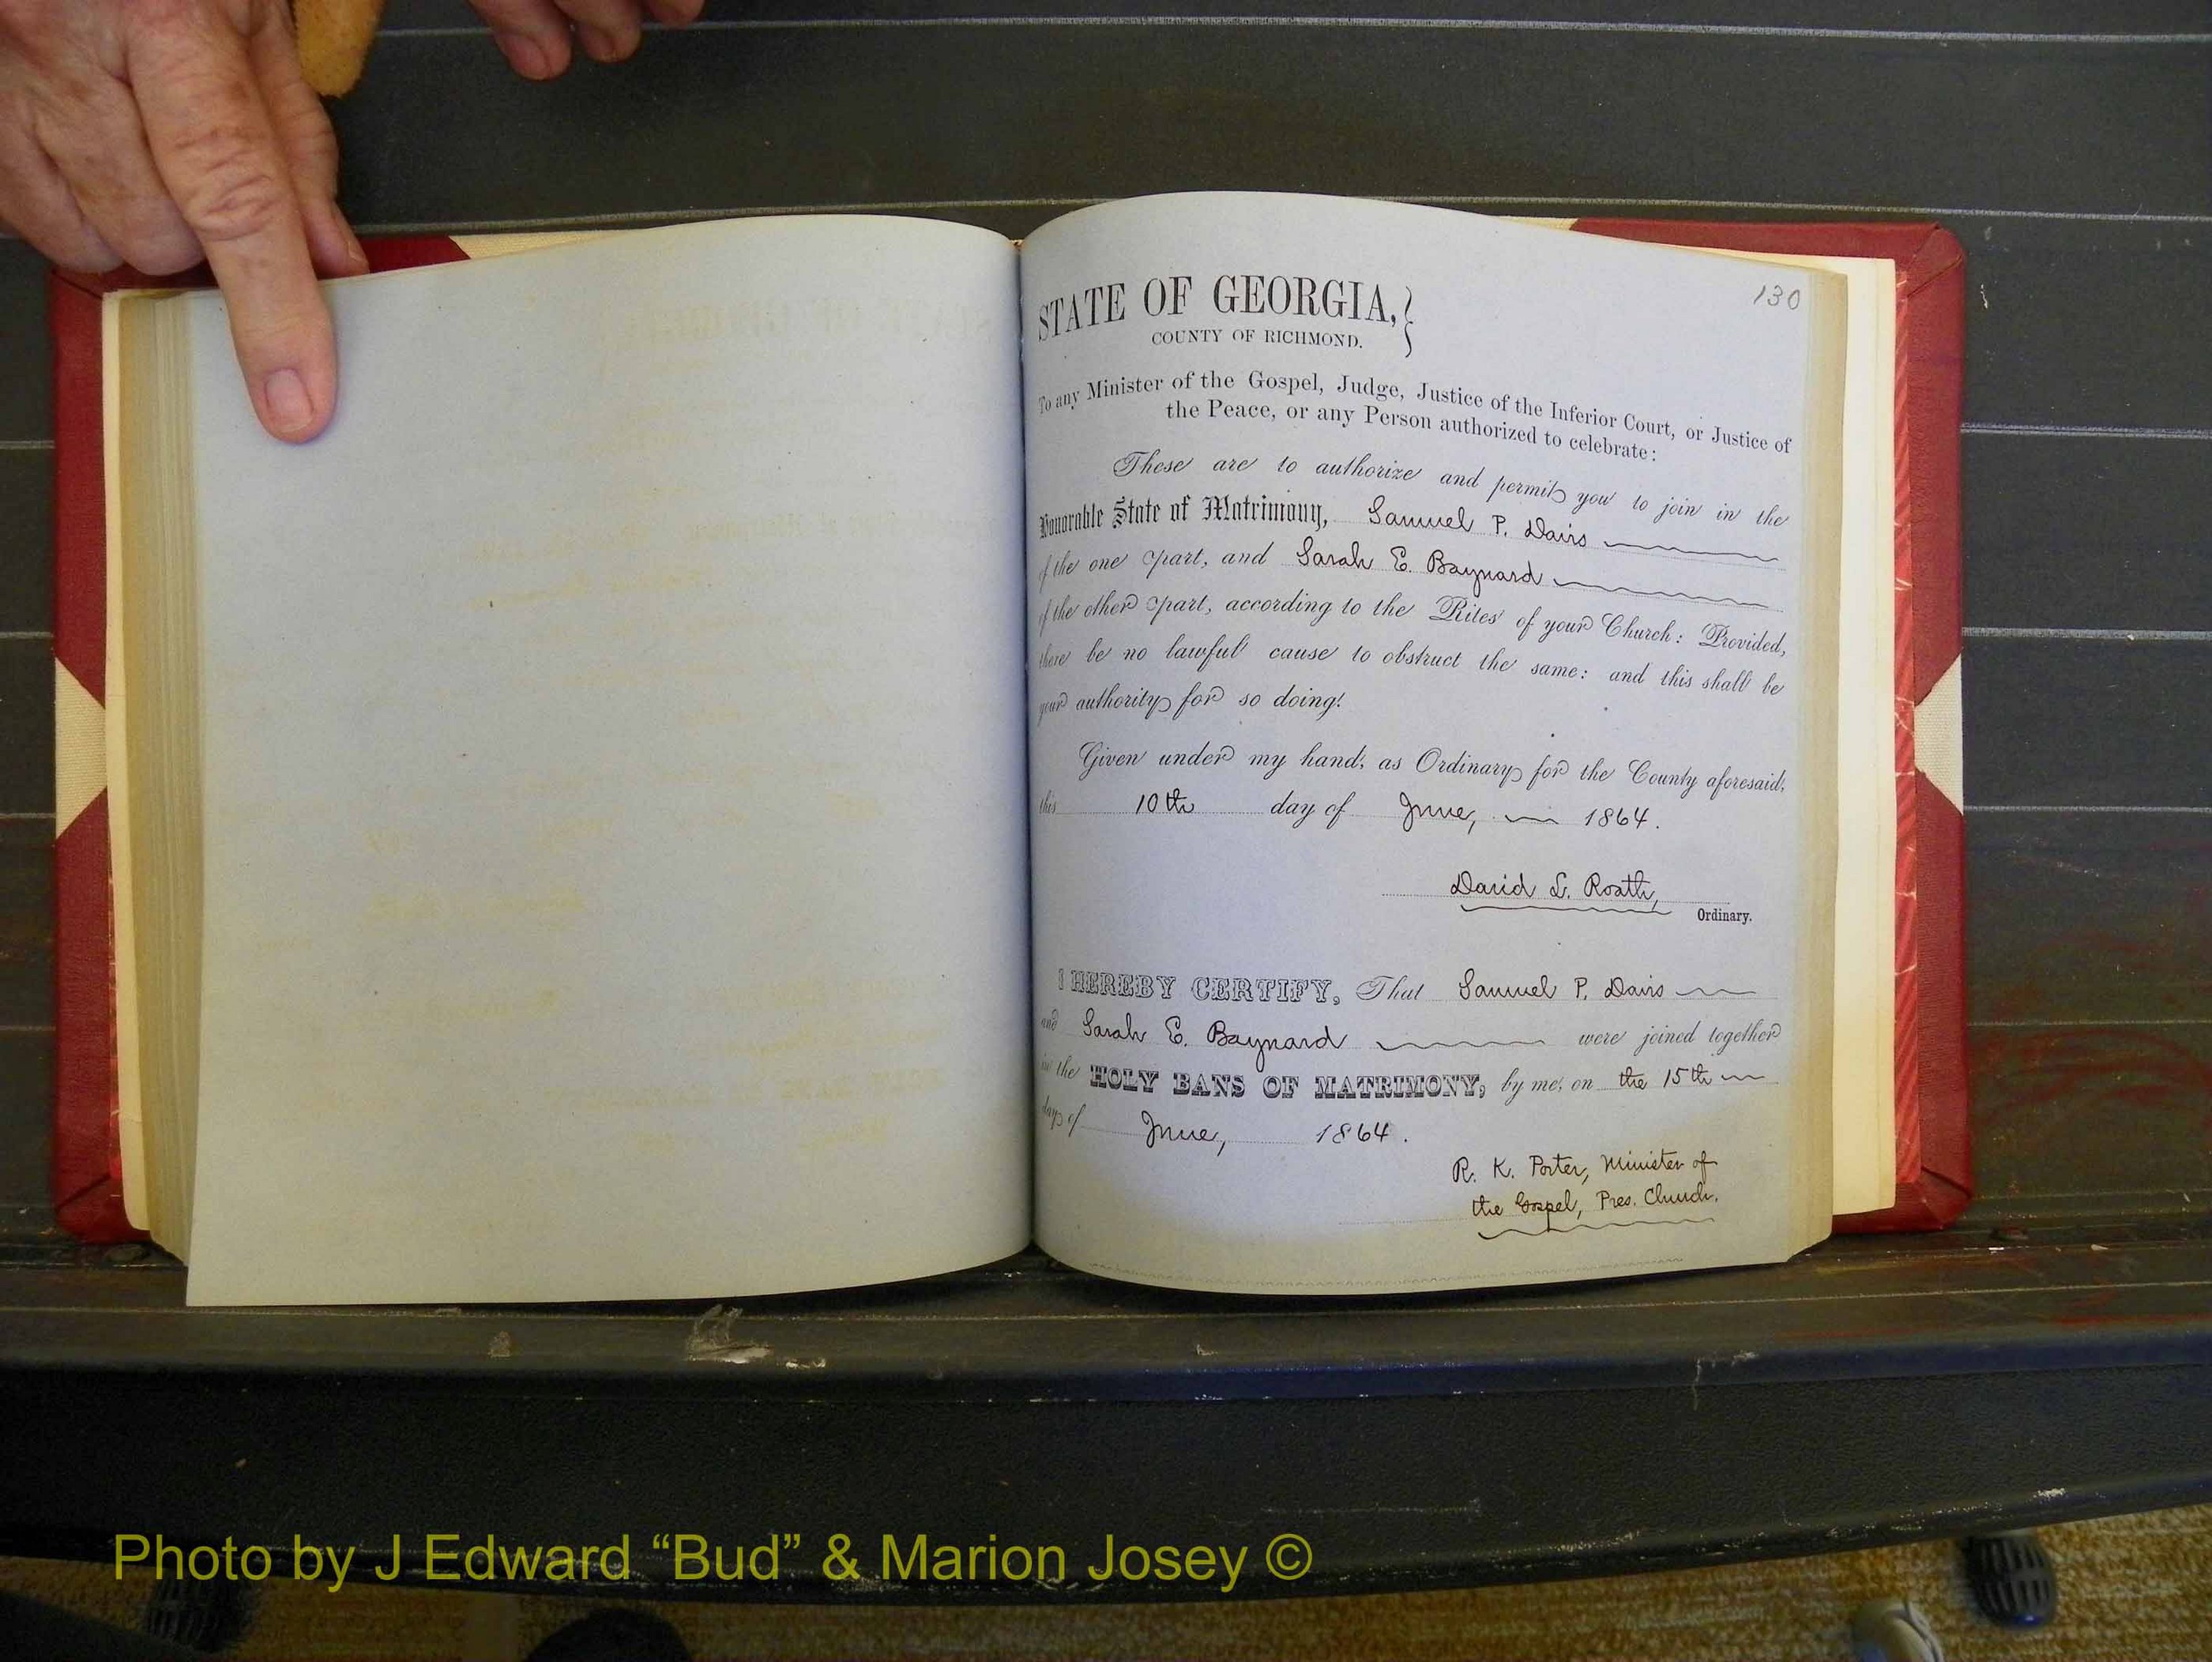 130
STATE OF GEORGIA,
COUNTY OF RICHMOND.
To any Minister of the Gospel, Judge, Justice of the Inferior Court, or Justice of
the Peace, or any Person authorized to celebrate:
These are to authorize and permit you to join in the
Honorable State of Matrimony, Samuel P. Davis
of the one part, and Sarah E. Baynard
of the other part, according to the Rites of your Church: Provided,
there be no lawful cause to obstruct the same: and this shall be
your authority for so doing.
Given under my hand, as Ordinary for the County aforesaid,
this 10th day of June, 1864.
David L. Roath,
Ordinary.
I HEREBY CERTIFY, That Samuel P. Davis
and Sarah E. Baynard were joined together
in the HOLY BANS OF MATRIMONY, by me, on the 15th
day of June, 1864.
R. K. Porter, Minister of
the Gospel, Pres. Church.
Photo by J Edward “Bud” & Marion Josey ©